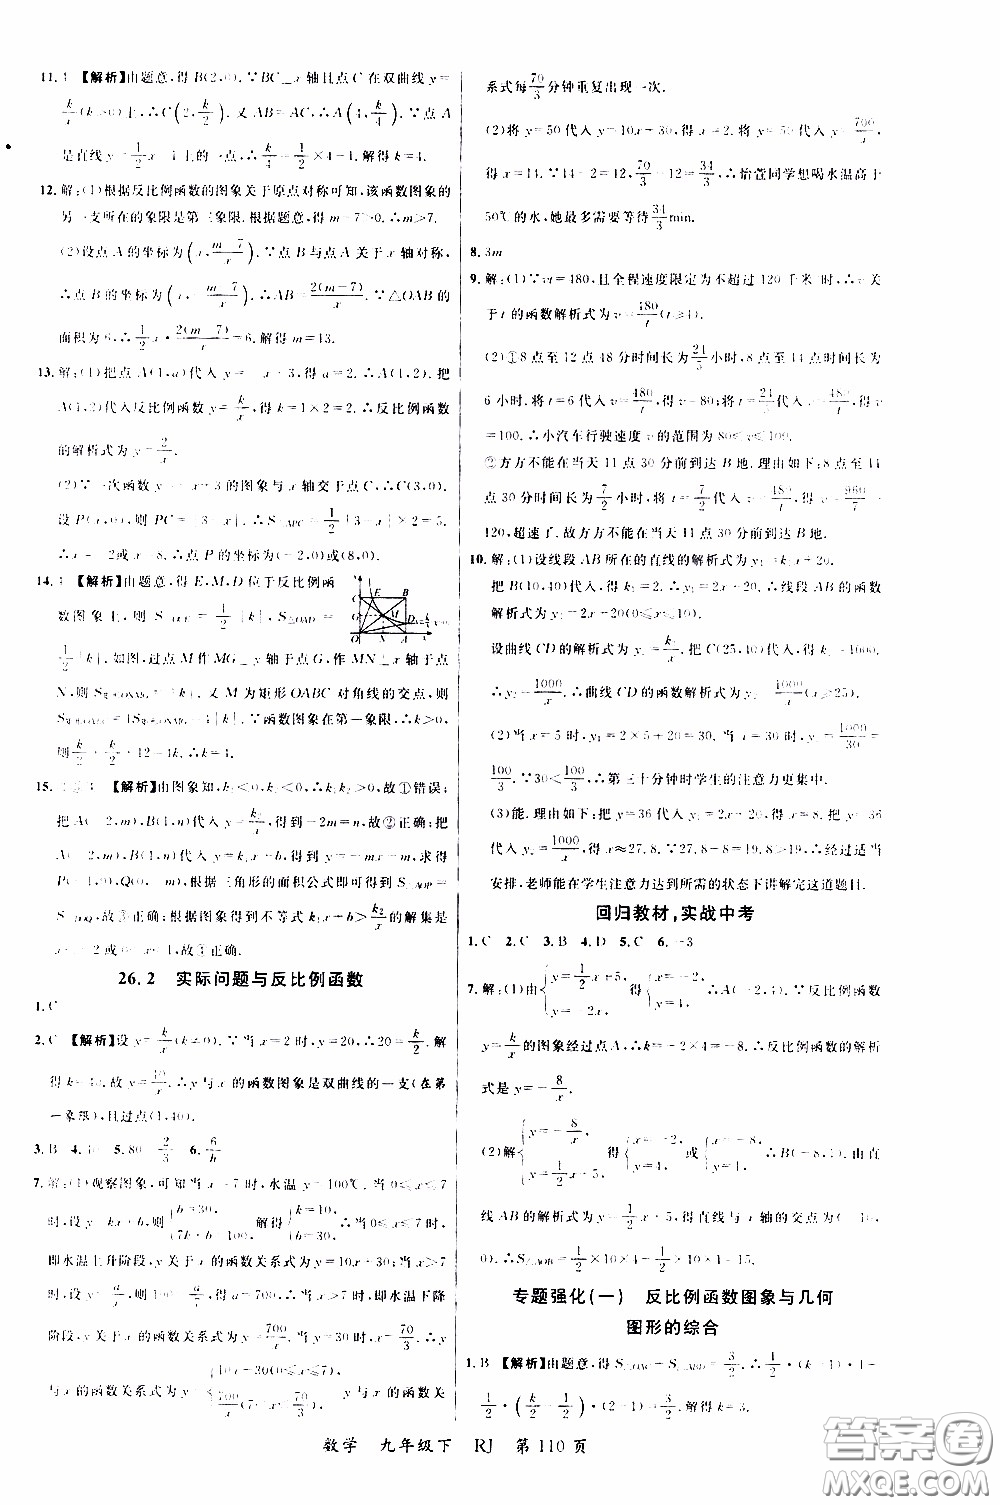 11. 【解析】由题意,得 B(2,0).∵BC⊥x 轴且点 C 在双曲线 y=
k/x (k>0)上,∴C(2, k/2). 又∵AB=AC,∴A(4, k/4).∵点 A
是直线 y=1/2 x-1上的一点,∴k/4=1/2×4-1.解得 k=4.
12. 解:(1)根据反比例函数的图象关于原点对称可知,该函数图象的
另一支所在的象限是第三象限.根据题意,得 m-7>0.∴m>7.
(2)设点 A 的坐标为(x, (m-7)/x).∵点 B 与点 A 关于 x 轴对称,
∴点 B 的坐标为(x, -(m-7)/x).∴AB=2(m-7)/x.∵△OAB 的
面积为 6,∴1/2 x·2(m-7)/x=6.解得 m=13.
13. 解:(1)把点 A(1,a)代入 y=-x+3,得 a=2.∴A(1,2).把
A(1,2)代入反比例函数 y=k/x,得 k=1×2=2.∴反比例函数
的解析式为 y=2/x.
(2)∵一次函数 y=-x+3的图象与 x 轴交于点 C,∴C(3,0).
设 P(x,0),则 PC=|3-x|.∴S△APC=1/2|3-x|×2=5.
∴x=-2或 x=8.∴点 P 的坐标为(-2,0)或(8,0).
14. 【解析】由题意,得 E,M,D 位于反比例函
数图象上,则 S△OCE=1/2|k|,S△OAD=
1/2|k|.如图,过点 M 作 MG⊥y 轴于点 G,作 MN⊥x 轴于点
N,则 S=|k|.又∵M 为矩形 OABC 对角线的交点,则
S=4S=4|k|.∵函数图象在第一象限,∴k>0,
则 k/2+k/2+12=4k.∴k=4.
15. 【解析】由图象知,k₁<0,k₂<0,∴k₁k₂>0,故①错误;
把 A(-2,m),B(1,n)代入 y=k₂/x,得到-2m=n,故②正确;
把 A(-2,m),B(1,n)代入 y=k₁x+b,求得
P(-1,0),Q(0,-m).根据三角形的面积公式即可得到 S△AOP=
S△BOQ,故③正确;根据图象得到不等式 k₁x+b>k₂/x 的解集是
x<-2或 0<x<1,故④正确.
26.2 实际问题与反比例函数
1. C
2. C 【解析】设 y=k/x (k≠0).∵当 x=2时,y=20,∴20=k/2.解
得 k=40.故 y=40/x.∴y 与 x 的函数图象是双曲线的一支(在第
一象限),且过点(1,40).
3. B 4. 5. 80 2/3 6. 6/h
7. 解:(1)观察图象,可知当 x=7时,水温 y=100℃.当 0≤x≤7
时,设 y=kx+b,则{b=30, 7k+b=100.解得{k=10, b=30.∴当 0≤x≤7时,
即水温上升阶段,y 关于 x 的函数关系式为 y=10x+30;当 x>7
时,设 y=a/x,则100=a/7.解得 a=700,∴y=700/x,即水温下降
阶段,y 关于 x 的函数关系式为 y=700/x.当 y=30时,x=70/3.∴y
与 x 的函数关系式为 y={10x+30(0≤x≤7), 700/x(7<x≤70/3).y 与 x 的函数关
系式每70/3分钟重复出现一次.
(2)将 y=50代入 y=10x+30,得 x=2.将 y=50代入 y=700/x,
得 x=14.∵14-2=12,70/3-12=34/3.∴怡萱同学想喝水温高于
50℃的水,她最多需要等待34/3min.
8. 3m
9. 解:(1)∵vt=480,且全程速度限定为不超过 120 千米/时,∴v 关
于 t 的函数解析式为 v=480/t(t≥4).
(2)①8点至 12 点 48 分时间长为24/5小时,8点至14点时间长为
6小时.将 t=6代入 v=480/t,得 v=80;将 t=24/5代入 v=480/t,得 v
=100.∴小汽车行驶速度 v 的范围为 80≤v≤100.
②方方不能在当天 11 点 30 分前到达 B 地.理由如下:8点至 11
点 30 分时间长为7/2小时,将 t=7/2代入 v=480/t,得 v=960/7>
120,超速了.故方方不能在当天 11 点 30 分前到达 B 地.
10. 解:(1)设线段 AB 所在的直线的解析式为 y₁=k₁x+20.
把 B(10,40)代入,得 k₁=2.∴y₁=2x+20.∴线段 AB 的函数
解析式为 y₁=2x+20(0≤x≤10).
设曲线 CD 的解析式为 y₂=k₂/x.把 C(25,40)代入,得 k₂=1000.
∴y₂=1000/x.∴曲线 CD 的函数解析式为 y₂=1000/x(x≥25).
(2)当 x=5时,y₁=2×5+20=30.当 x=30时,y₂=1000/30=
100/3.∵30<100/3,∴第三十分钟时学生的注意力更集中.
(3)能.理由如下:把 y=36代入 y₁=2x+20,得 x=8.把 y=36
代入 y₂=1000/x,得 x≈27.8.∵27.8-8=19.8>19,∴经过适当
安排,老师能在学生注意力达到所需的状态下讲解完这道题目.
回归教材,实战中考
1. C 2. C 3. B 4. D 5. C 6. -3
7. 解:(1)由{y=1/2 x+5, y=-2x,得{x=-2, y=4.∴A(-2,4).∵反比例函数
y=k/x 的图象经过点 A,∴k=-2×4=-8.∴反比例函数的解析
式是 y=-8/x.
(2)解{y=-8/x, y=1/2 x+5,得{x=-2, y=4或{x=-8, y=1.∴B(-8,1).由直
线 AB 的解析式为 y=1/2 x+5,得直线与 x 轴的交点为(-10,
0).∴S△AOB=1/2×10×4-1/2×10×1=15.
专题强化(一) 反比例函数图象与几何
图形的综合
1. B 【解析】由题意,得 S△AOC-S△BOD=3/2,∴1/2·k·1-
1/2·(k/2-1/2)·(2-1)=3/2.解得 k=3.
数学 九年级下 RJ 第 110 页
答案圈
MXQE.COM